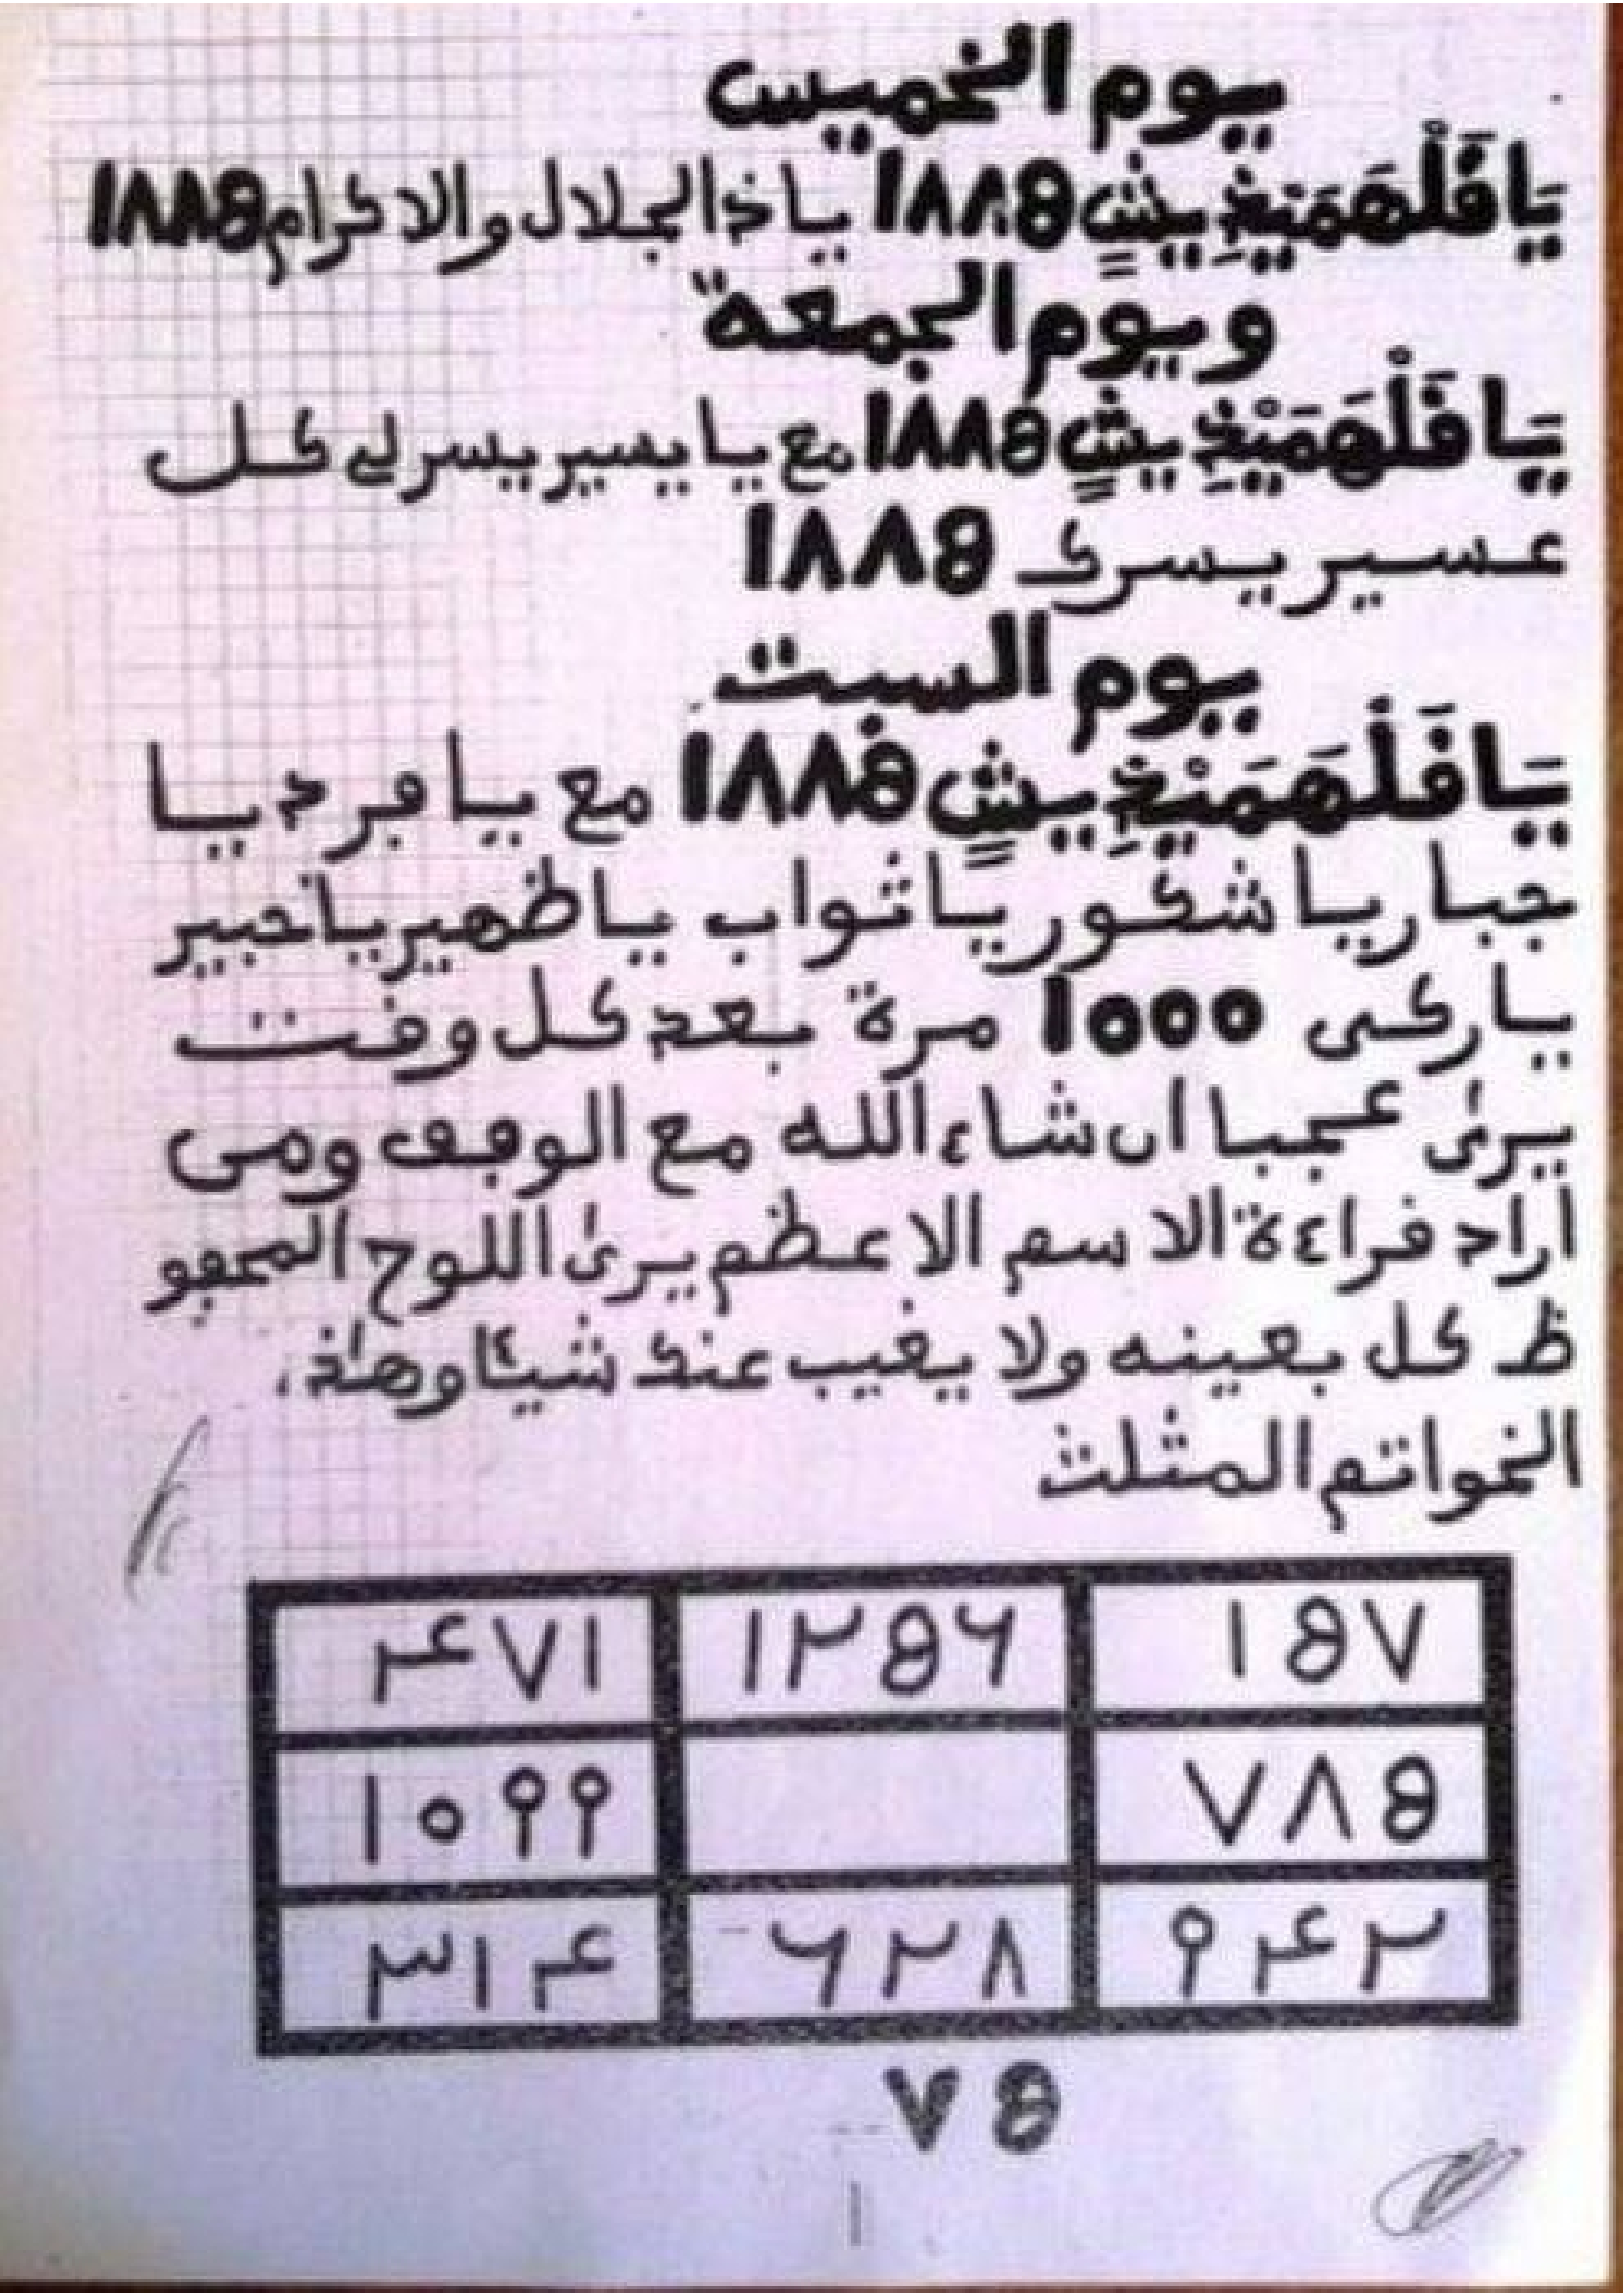 يوم الخميس
يَا فَلْهَمَيْخِيشٍ ١٨٨٥ يا ذا الجلال والاكرام ١٨٨٥
ويوم الجمعة
يَا فَلْهَمَيْخِيشٍ ١٨٨٥ مع يا يسير يسر لي كل
عسير يسرك ١٨٨٥
يوم السبت
يَا فَلْهَمَيْخِيشٍ ١٨٨٥ مع يا فرد يا
جبار يا شكور يا تواب يا ظهير يا خبير
يا ركى ١٥٥٥ مرة بعد كل وقت
يرى عجبا ان شاء الله مع الوفف ومن
اراد قراءة الاسم الاعظم يرى اللوح المحفو
ظ كل بعينه ولا يغيب عنك شيئا وهذه
الخواتم المثلث
٤٧١ ١٢٥٦ ١٥٧
١٠٩٩ ٧٨٥
٣١٤ ٦٢٨ ٩٤٢
٧٥